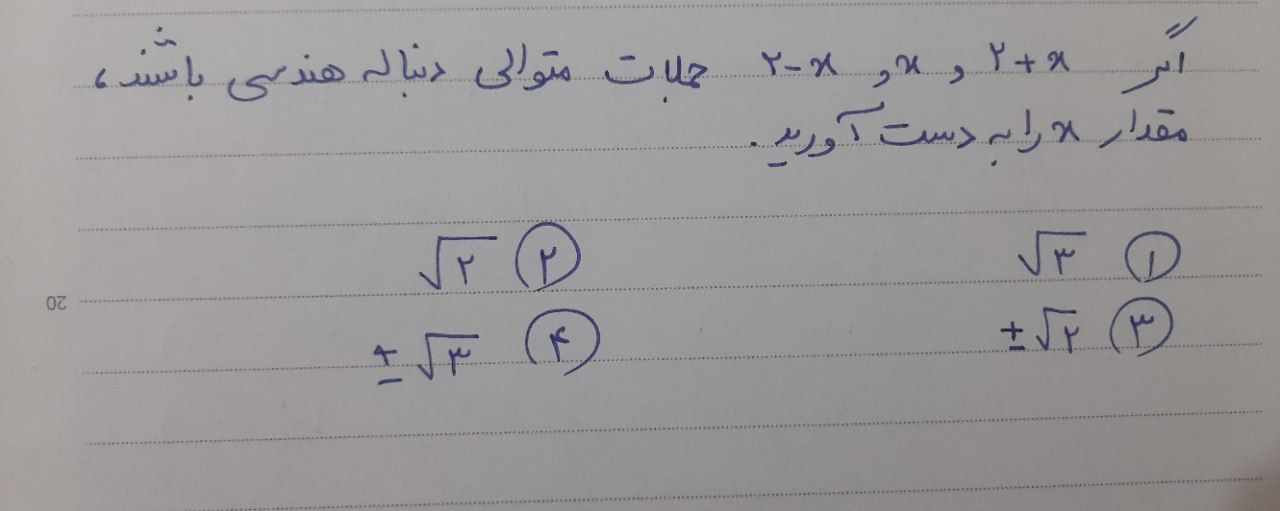 اگر ۲+x و x و ۲-x جملات متوالی دنباله هندسی باشند،
مقدار x را به دست آورید.
۱ √۳ ۲ √۲
۳ ±√۲ ۴ ±√۳
20